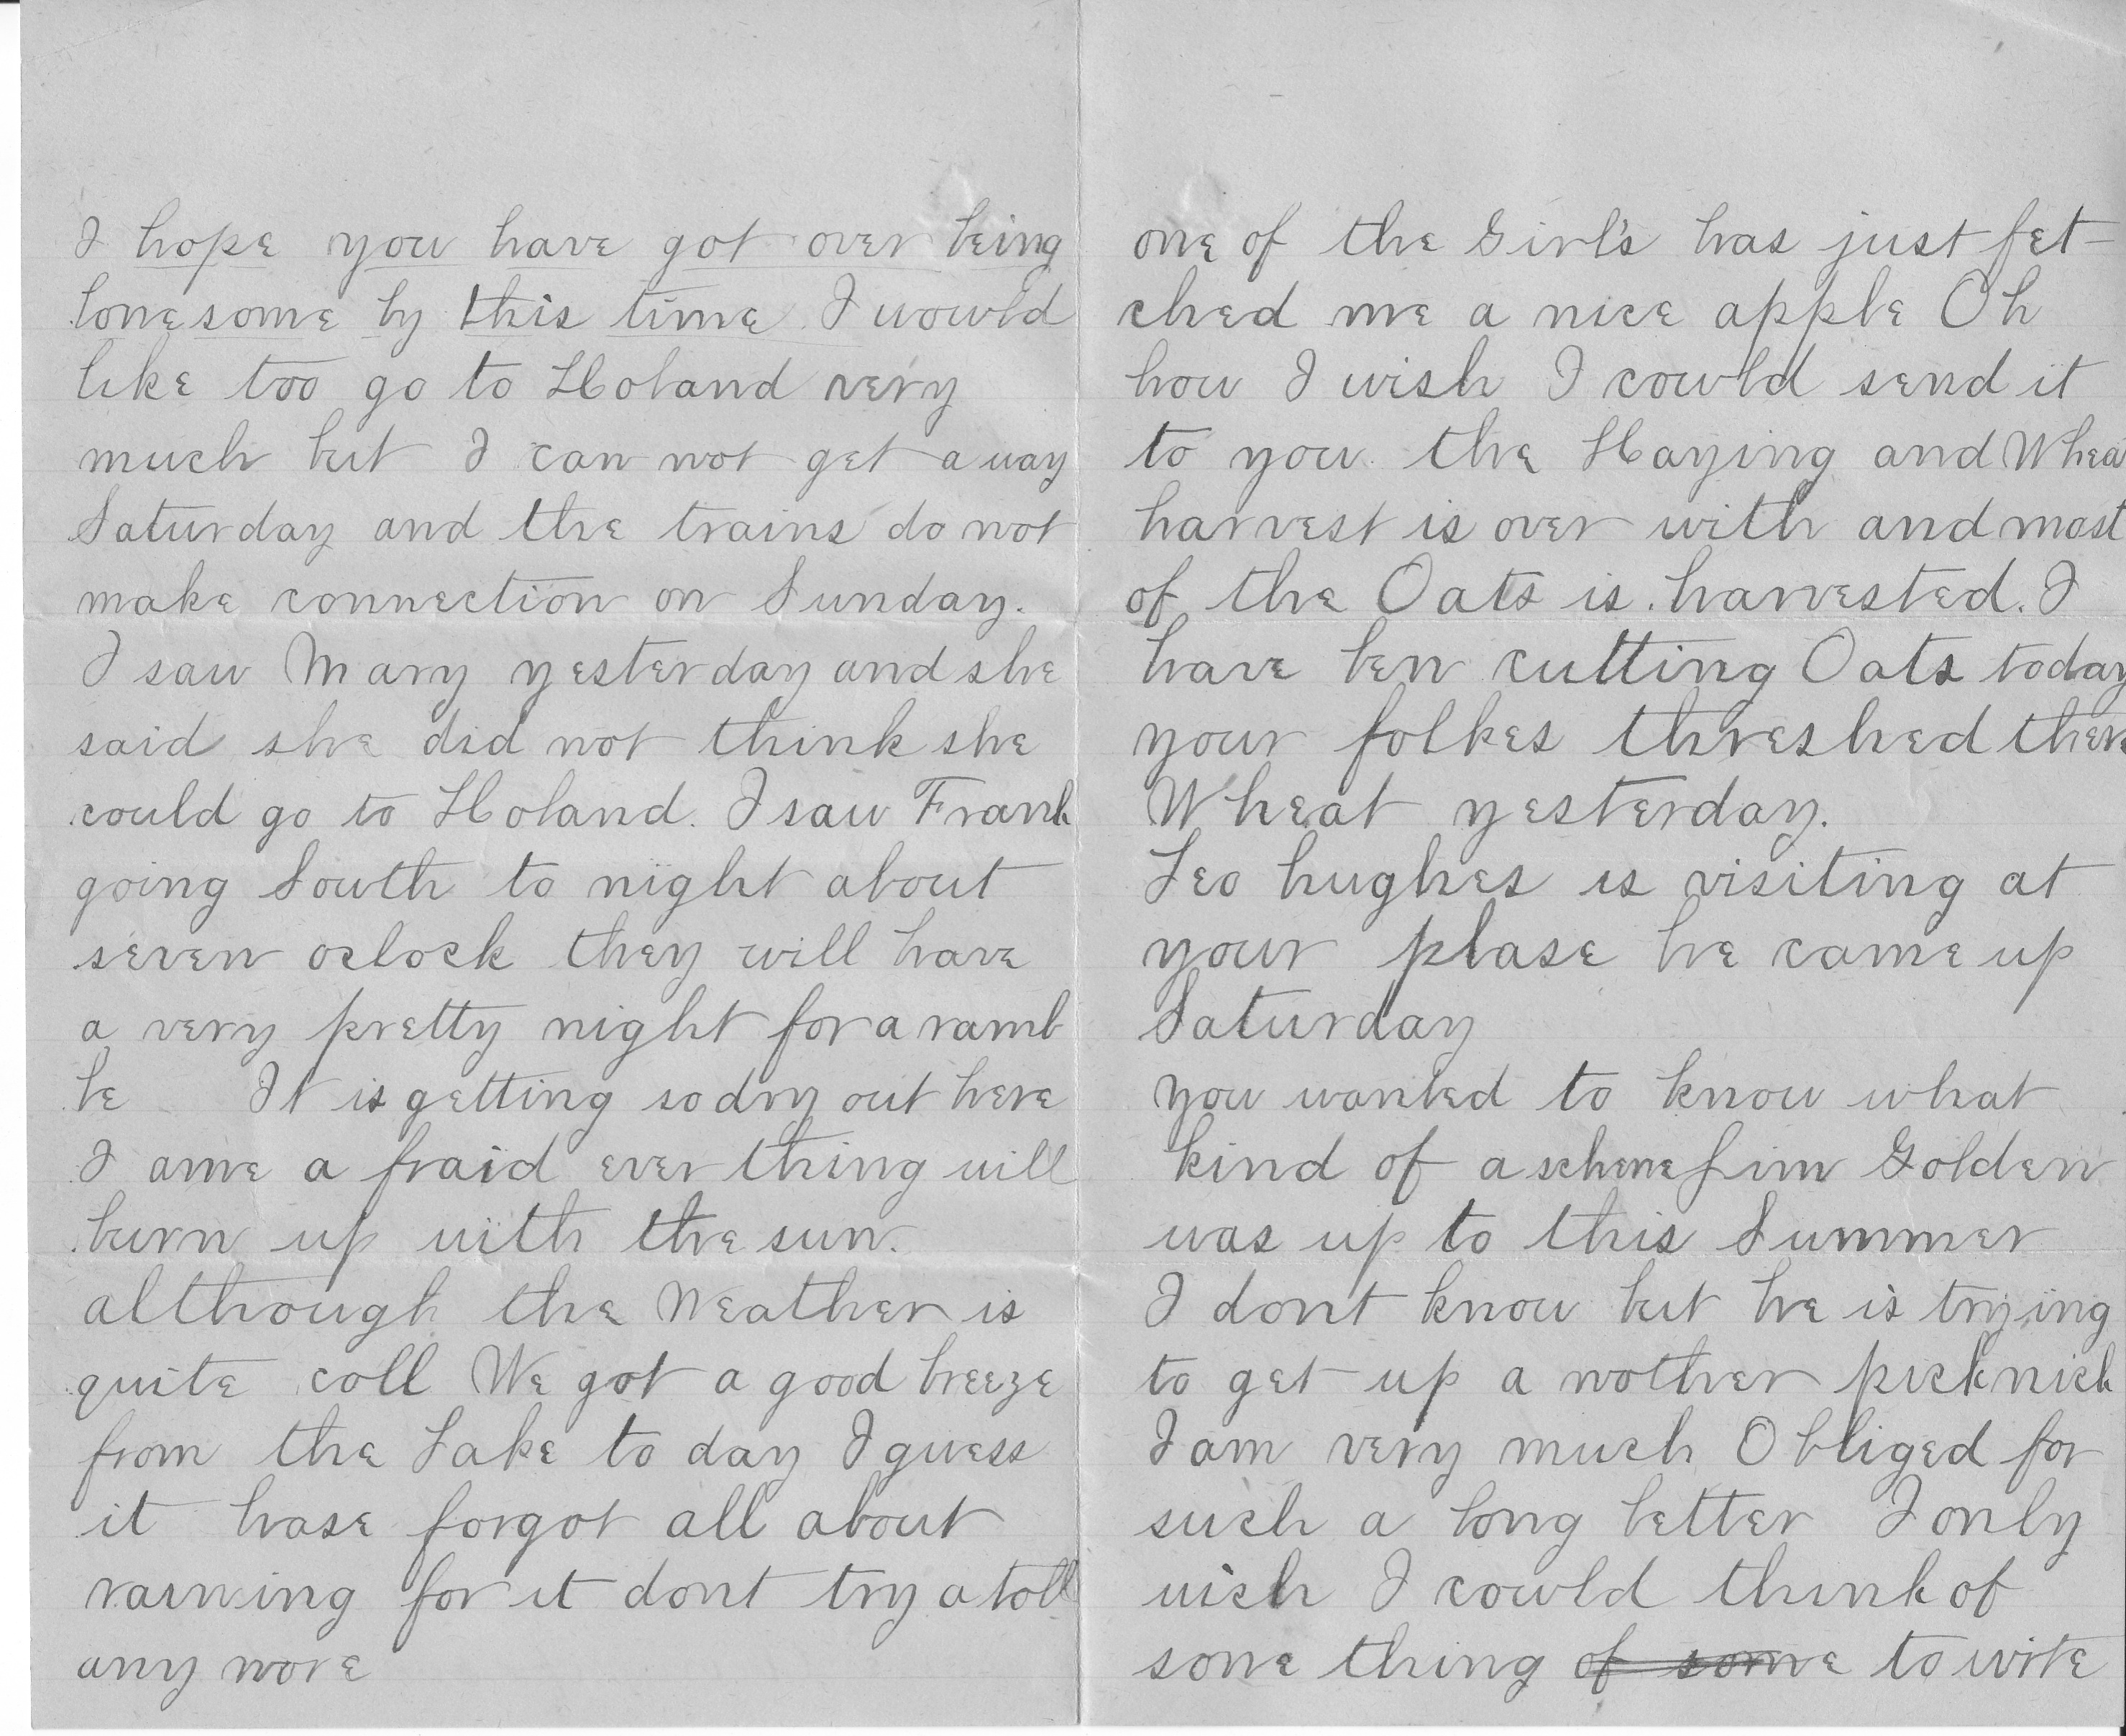 I hope you have got over being
lonesome by this time I wowld
like too go to Holand very
much but I can not get a way
Saturday and the trains do not
make connection on Sunday.
I saw Mary yesterday and she
said she did not think she
could go to Holand. I saw Frank
going South to night about
seven oclock they will have
a very pretty night for a ramb
le It is getting so dry out here
I ame a fraid ever thing will
burn up with the sun.
although the Weather is
quite coll We got a good breeze
from the Lake to day I guess
it hase forgot all about
raining for it dont try a toll
any more
one of the Girl's has just fet-
ched me a nice apple Oh
how I wish I cowld send it
to you. the Haying and Whea
harvest is over with and most
of the Oats is harvested. I
have ben cutting Oats today
your folkes threshed there
Wheat yesterday.
Leo hughes is visiting at
your plase he came up
Saturday
you wanted to know what
kind of a scheme Jim Golden
was up to this Summer
I dont know but he is trying
to get up a nother picknick
I am very much Obliged for
such a long letter I only
wish I cowld think of
some thing of some to write